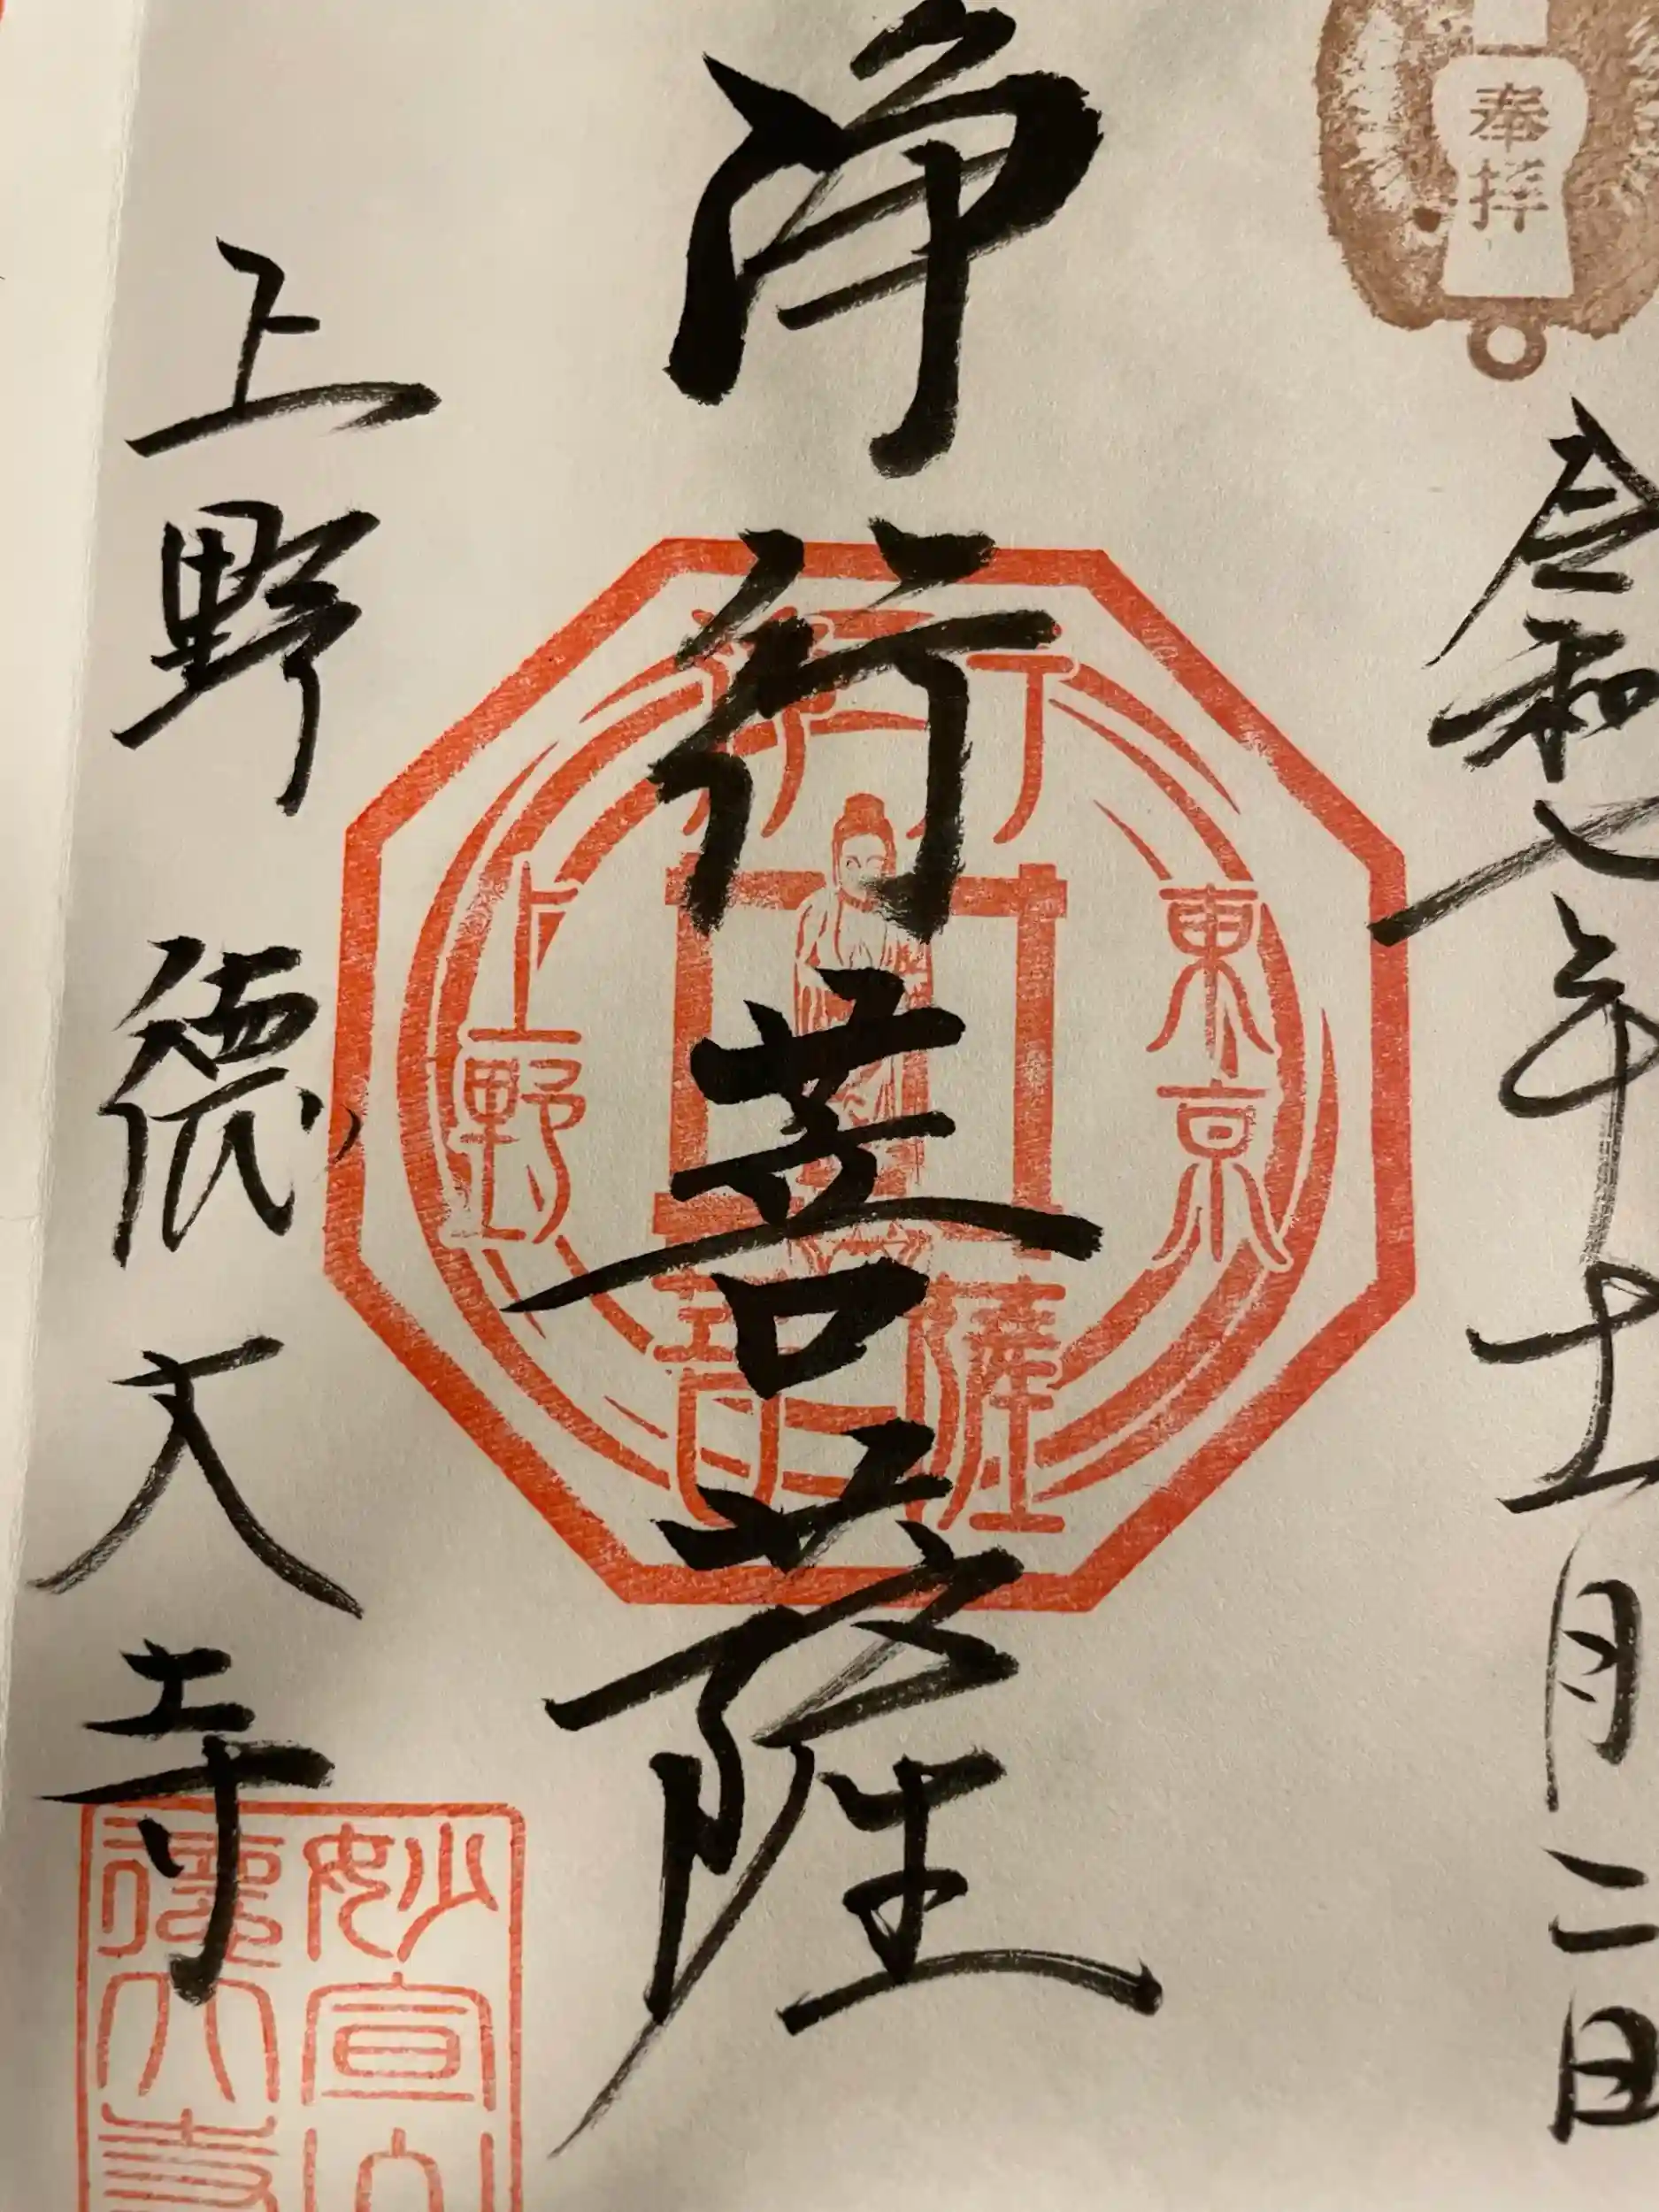 奉拝
令和七年十一月二日
浄行菩薩
東京
上野
菩薩
上野 徳大寺
妙宣山
徳大寺